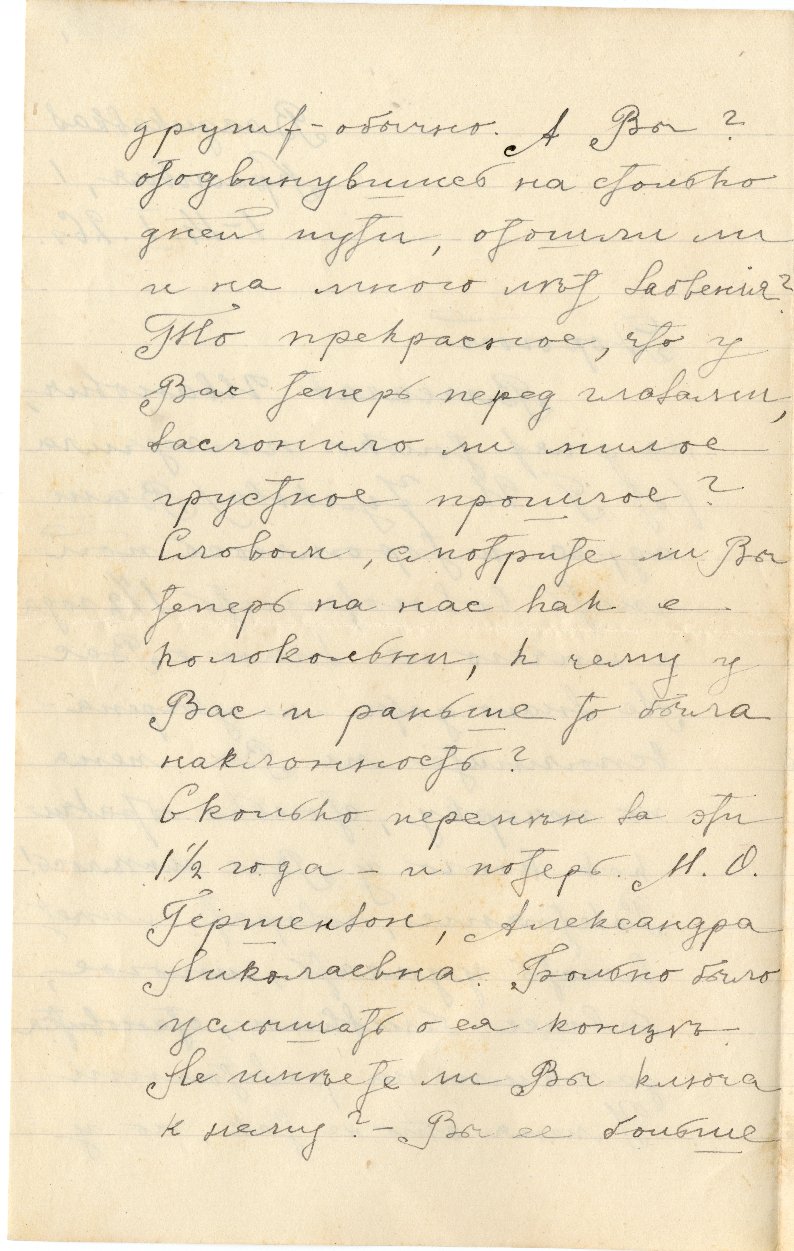 других - обычно. А Вы?
отодвинувшись на столько
дней пути, отошли ли
и на много лѣт забвения?
То прекрасное, что у
Вас теперь перед глазами,
заслонило ли милое
грустное прошлое?
Словом, смотрите ли Вы
теперь на нас как с
колокольни, к чему у
Вас и раньше то была
наклонность?
Сколько перемѣн за эти
1½ года - и потерь. М. О.
Гершензон, Александра
Николаевна. Больно было
услышать о ея концѣ.
Не имѣете ли Вы ключа
к нему? - Вы ее больше